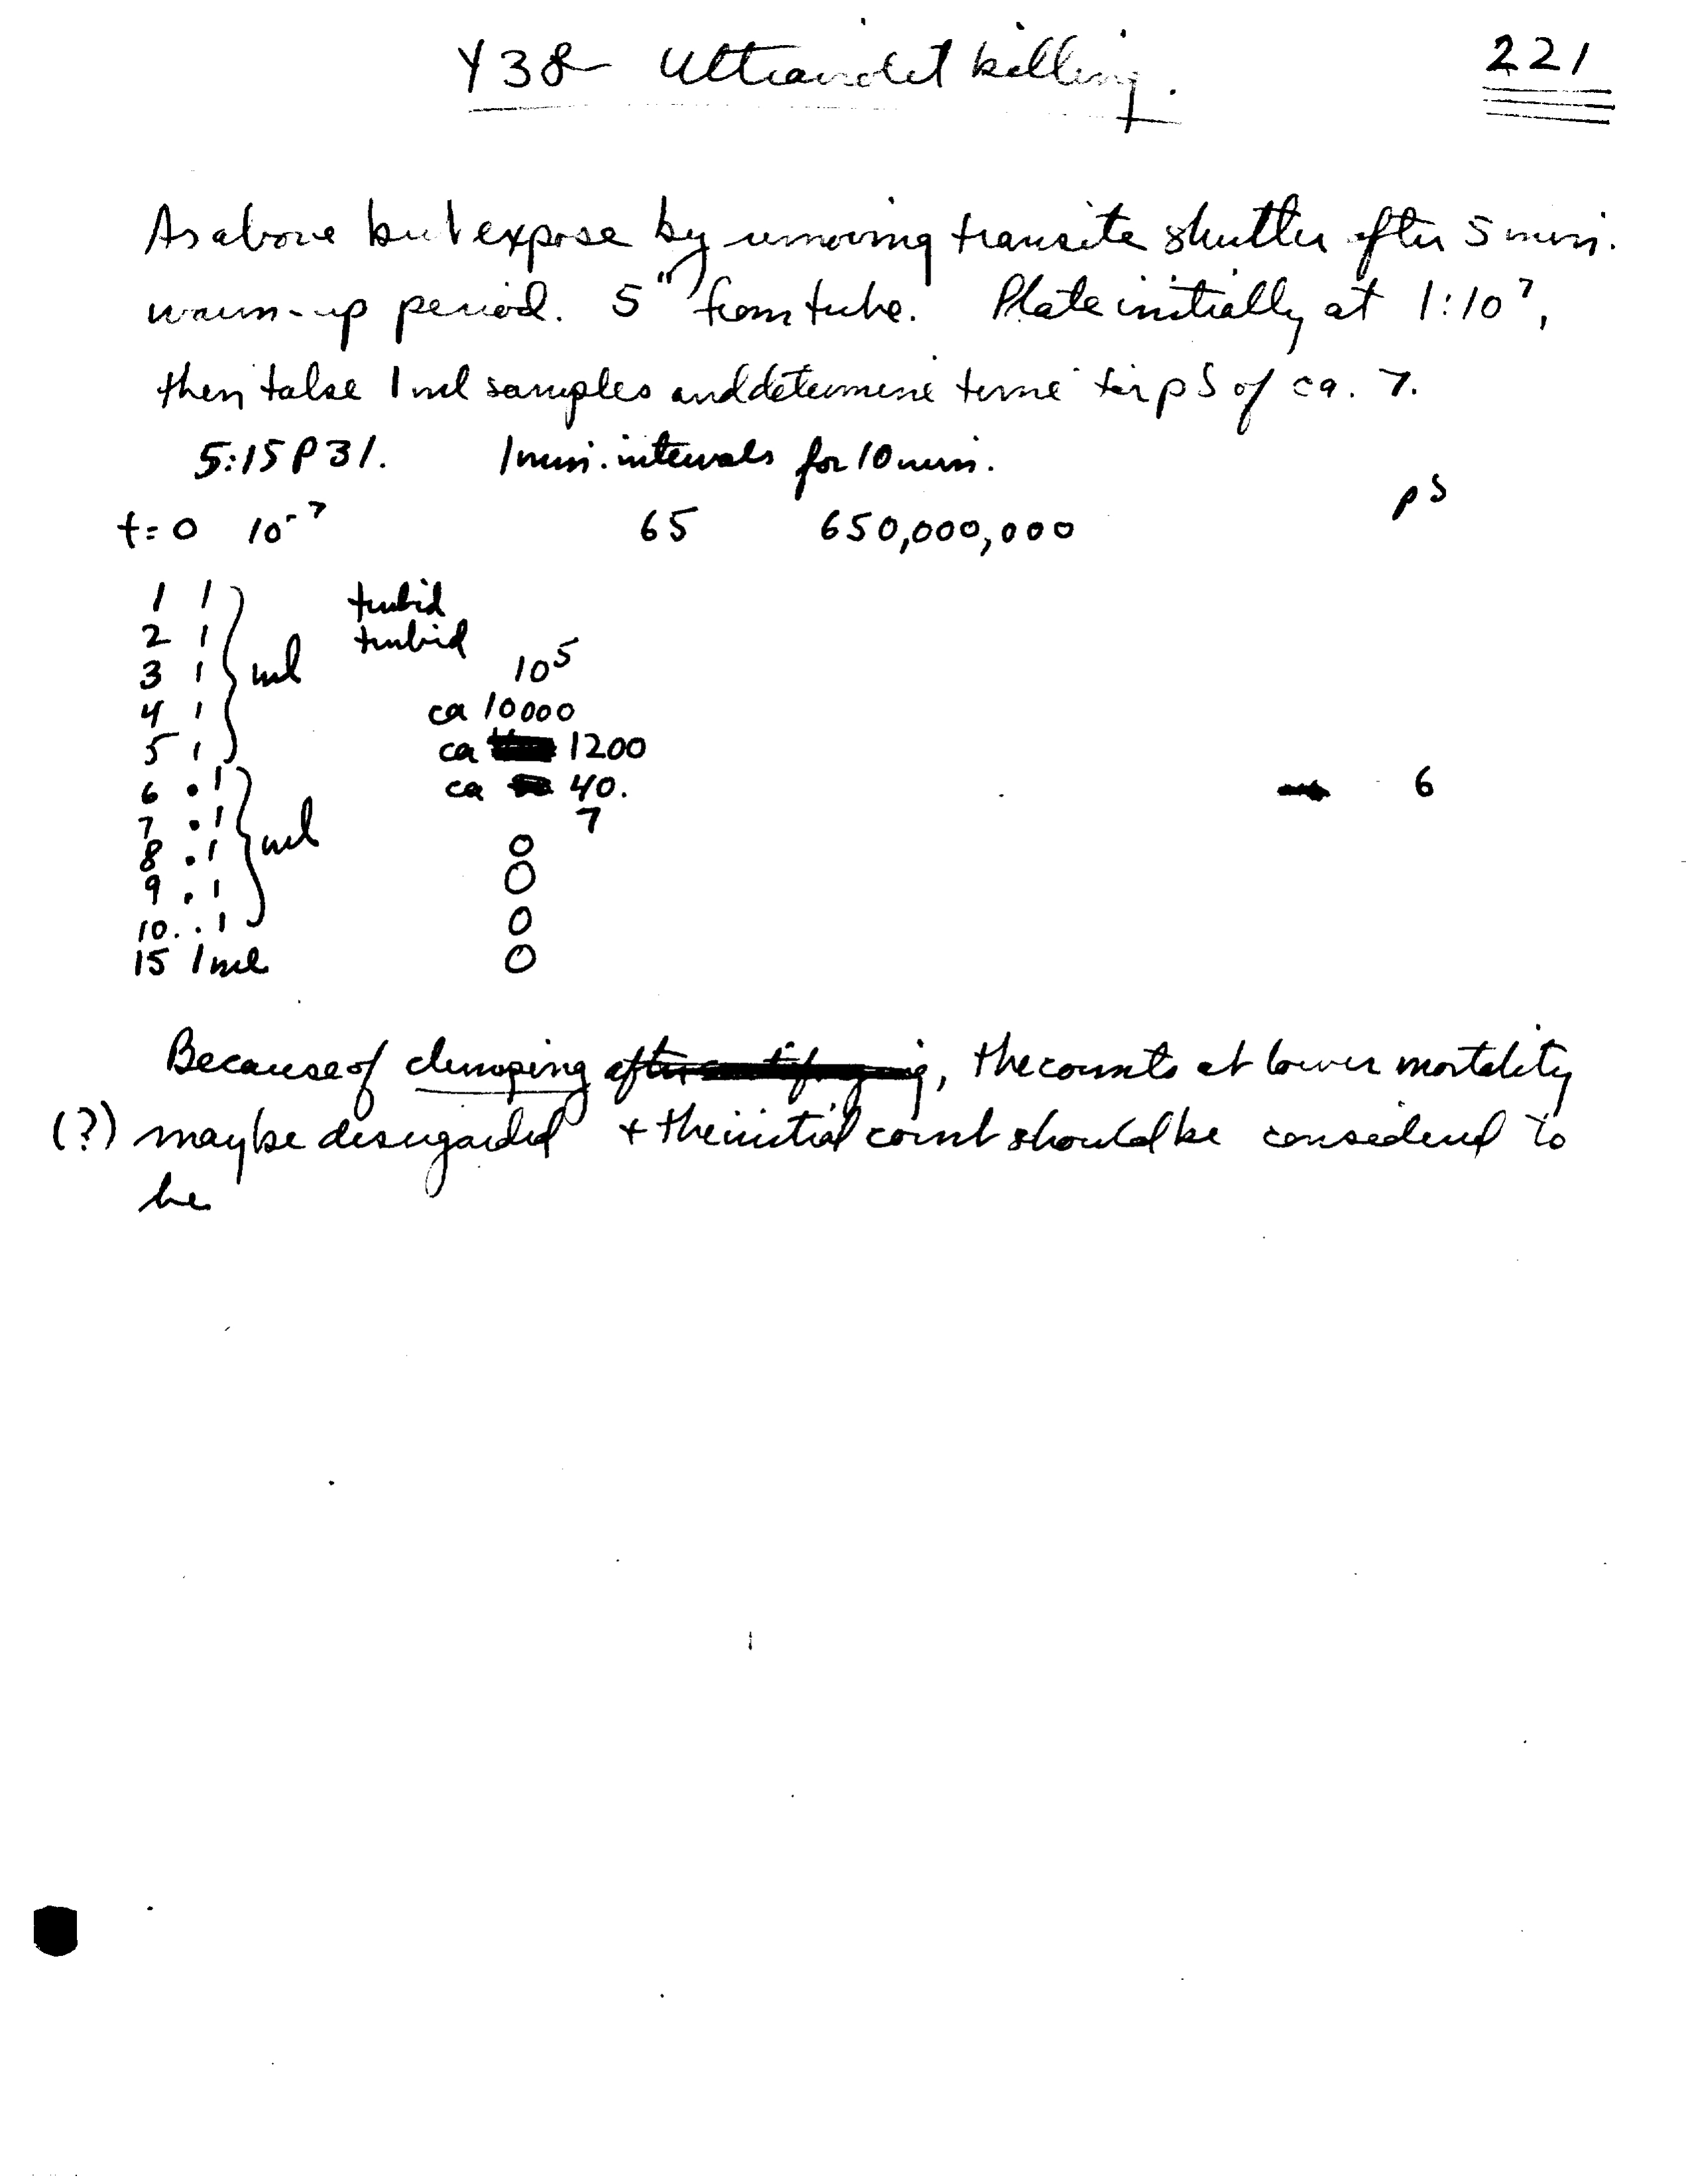 Y38 Ultraviolet killing.
221
As above but expose by removing transite shutter after 5 min.
warm-up period. 5" from tube. Plate initially at 1:10⁷,
then take 1 ml samples and determine time for pS of ca. 7.
5:15 P 31. 1 min. intervals for 10 min.
pS
t=0 10⁻⁷ 65 650,000,000
1 1 turbid
2 1 turbid
3 1 ml 10⁵
4 1 ca 10000
5 1 ca 1200
6 .1 ca 40. 6
7 .1 7
8 .1 ml 0
9 .1 0
10. .1 0
15 1 ml 0
Because of clumping after, the counts at lower mortality
(?) may be disregarded + the initial count should be considered to
be